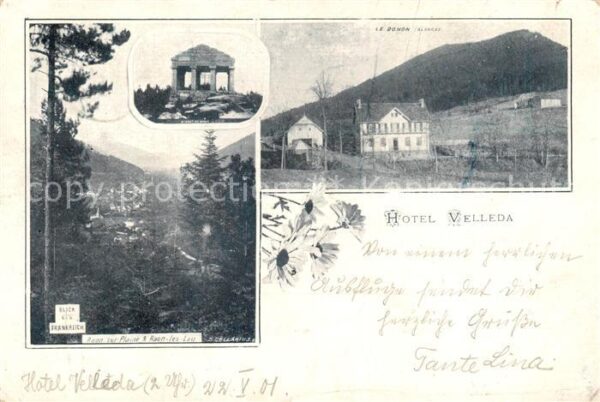 LE DONON (ALSACE)
HOTEL VELLEDA
Von einem herrlichen
Ausfluge sendet Dir
herzliche Grüße
Tante Lina.
BLICK
NACH
FRANKREICH
Raon sur Plaine & Raon-les-Leau
Hotel Velleda (2 Uhr) 22.V.01.
copy protection by Kartenplanet